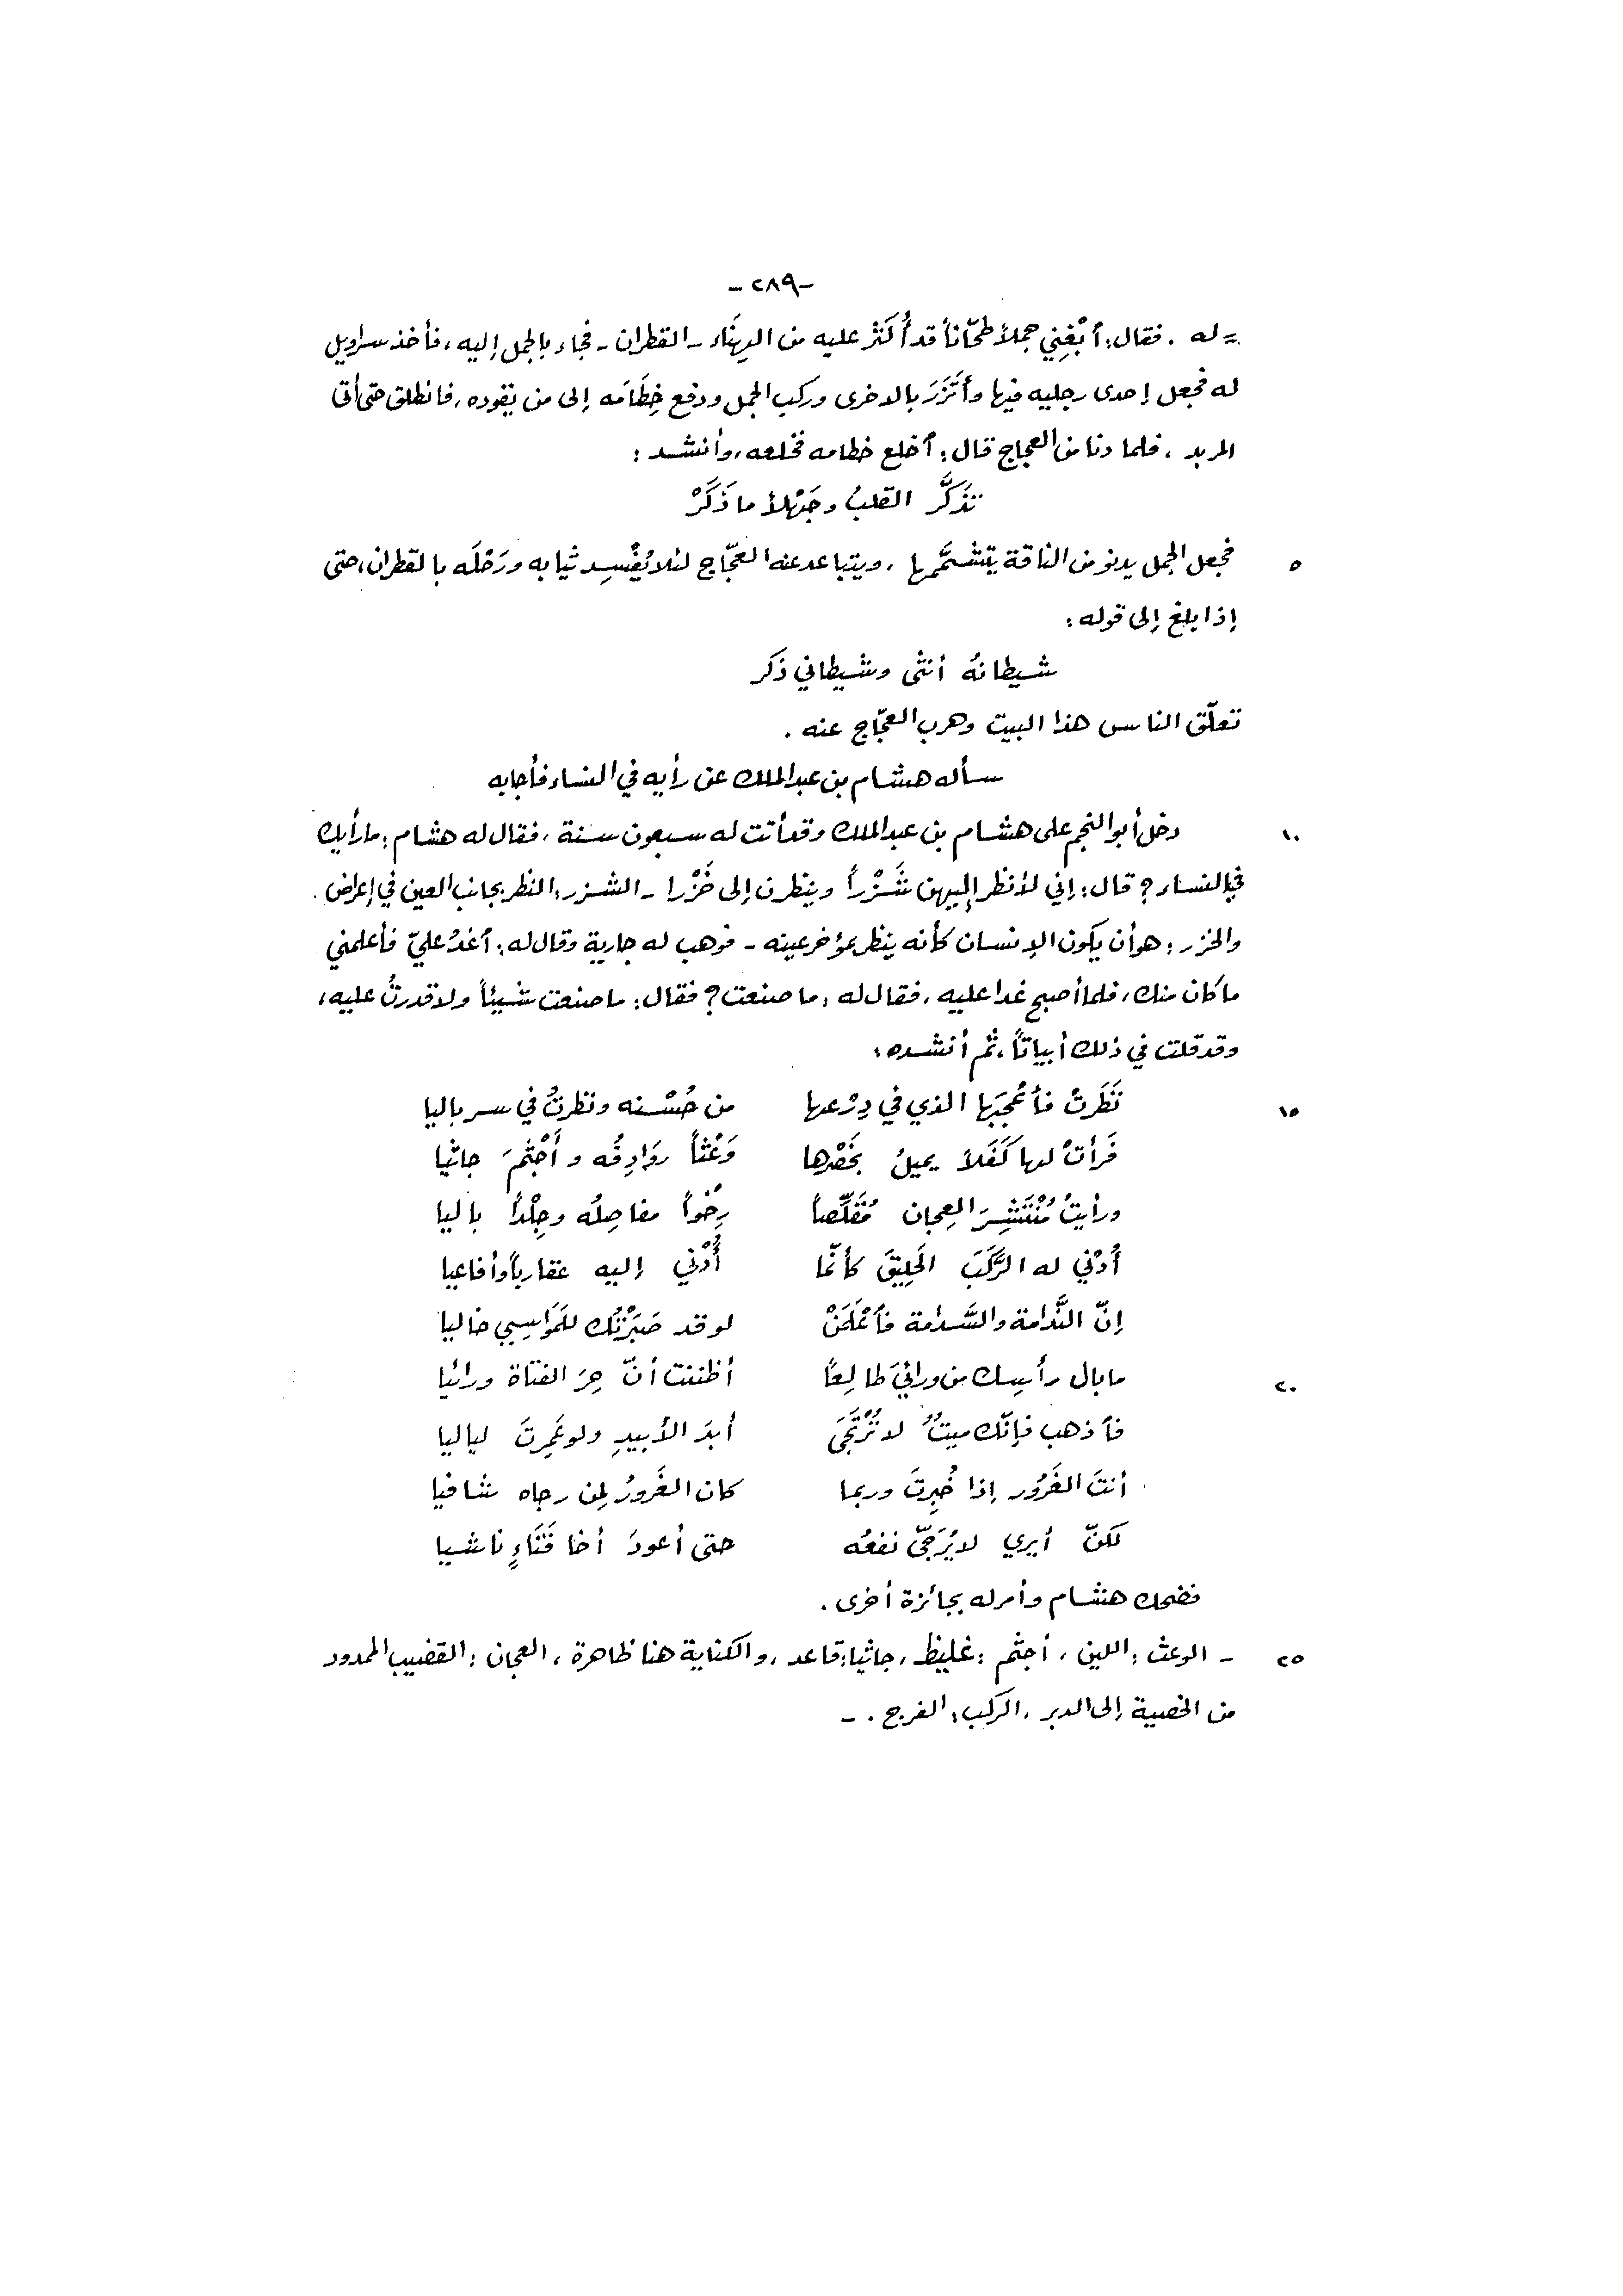 -٢٨٩-
= له . فقال: أبْغِني جملاً طحّاناً قد أُكثر عليه من الهِنَاء - القطران - فجاء بالجمل إليه، فأخذ سراويل
له فجعل إحدى رجليه فيها وأتَّزَرَ بالأخرى وركب الجمل ودفع خِطَامَه إلى من يقوده، فانطلق حتى أتى
المربد، فلما دنا من العجاج قال: أخلع خطامه فخلعه، وأنشد:
تَذَكَّر القلبُ وجَهْلاً ما ذَكَرْ
٥ فجعل الجمل يدنو من الناقة يتشمَّمها، ويتباعد عنه العجّاج لئلا يُفْسِد ثيابه ورَحْلَه بالقطران، حتى
إذا بلغ إلى قوله:
شيطانهُ أنثى وشيطاني ذَكر
تعلّق الناس هذا البيت وهرب العجّاج عنه .
سأله هشام بن عبد الملك عن رأيه في النساء فأجابه
١٠ دخل أبو النجم على هشام بن عبد الملك وقد أتت له سبعون سنة، فقال له هشام: ما رأيك
في النساء؟ قال: إني لأنظر إليهن شَزْراً وينظرن إلى خَزْرا - الشزر: النظر بجانب العين في إعراض.
والخزر: هو أن يكون الإنسان كأنه ينظر بمؤخر عينه - فوهب له جارية وقال له: أغدُ عليّ فأعلمني
ما كان منك، فلما أصبح غدا عليه، فقال له: ما صنعت؟ فقال: ما صنعت شيئاً ولا قدرتُ عليه،
وقد قلت في ذلك أبياتاً، ثم أنشده:
١٥ نَظَرتْ فأعْجَبَها الذي في دِرْعها من حُسْنه ونظرتُ في سرباليا
فَرأتْ لها كَفَلاً يميلُ بخَصْرها وَعْثاً روَادِفُه وأَجْثمَ جاثيا
ورأيتُ مُنْتَشِرَ العِجان مُقَلَّصاً رِخْواً مفاصِلُه وجِلْداً باليا
أُدْني له الرَّكَبَ الحَلِيقَ كأنّما أُدْني إليه عقارباً وأفاعيا
إنّ النَّدَامة والسَّدامة فأعْلَمَنْ لو قد صَبَرْتُك للمَوَاسِي خاليا
٢٠ ما بال رأسِك من ورائيَ طالِعاً أظننت أنّ حِرَ الفتاة ورائيا
فأذهب فإنّك ميتٌ لا تُرْتَجَى أبدَ الأبيدِ ولو عَمِرتَ لياليا
أنتَ الغَرُور إذا خُبِرتَ وربما كان الغَرورُ لمن رجاه شافيا
لكنّ أيري لا يُرَجّى نفعُه حتى أعودَ أخا فَتَاءٍ ناشيا
فضحك هشام وأمر له بجائزة أخرى .
٢٥ - الوعث: اللين، أجثم: غليظ، جاثيا: قاعد، والكناية هنا ظاهرة، العجان: القضيب الممدود
من الخصية إلى الدبر، الركب: الفرج . -